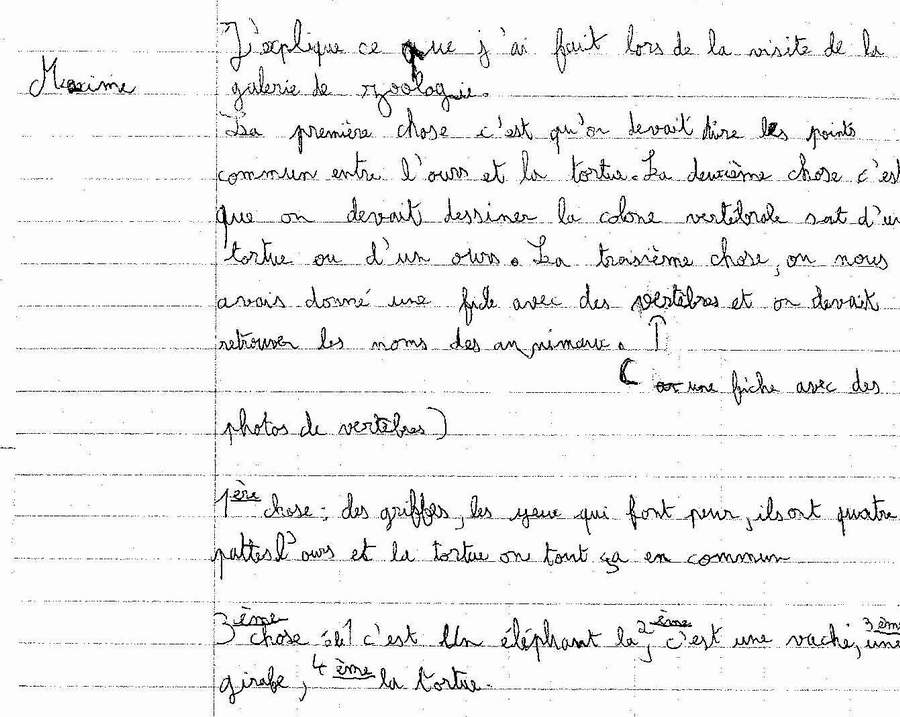 J'explique ce que j'ai fait lors de la visite de la
Maxime
galerie de zoologie.
La première chose c'est qu'on devait dire les points
commun entre l'ours et la tortue. La deuxième chose c'est
que on devait dessiner la colone vertébrale soit d'un
tortue ou d'un ours. La troisième chose, on nous
avais donné une fiche avec des vertèbres et on devait
retrouver les noms des annimaux. ↑
( une fiche avec des
photos de vertèbres)
1ère chose : des griffes, les yeux qui font peur, ils ont quatre
pattes l'ours et la tortue on tout ça en commun
3ème chose : le 1 c'est Un éléphant la 2ème, c'est une vache, 3ème une
girafe, 4ème la tortue.